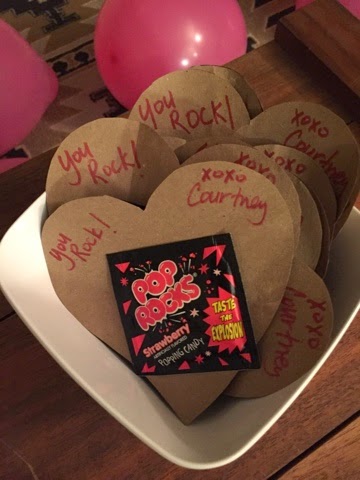 you
Rock!
you
Rock!
xoxo
Courtney
xoxo
xoxo
Courtney
you
Rock!
POP
ROCKS
Strawberry
ARTIFICIALLY FLAVORED
POPPING CANDY
TASTE
THE
EXPLOSION
xoxo
Courtney